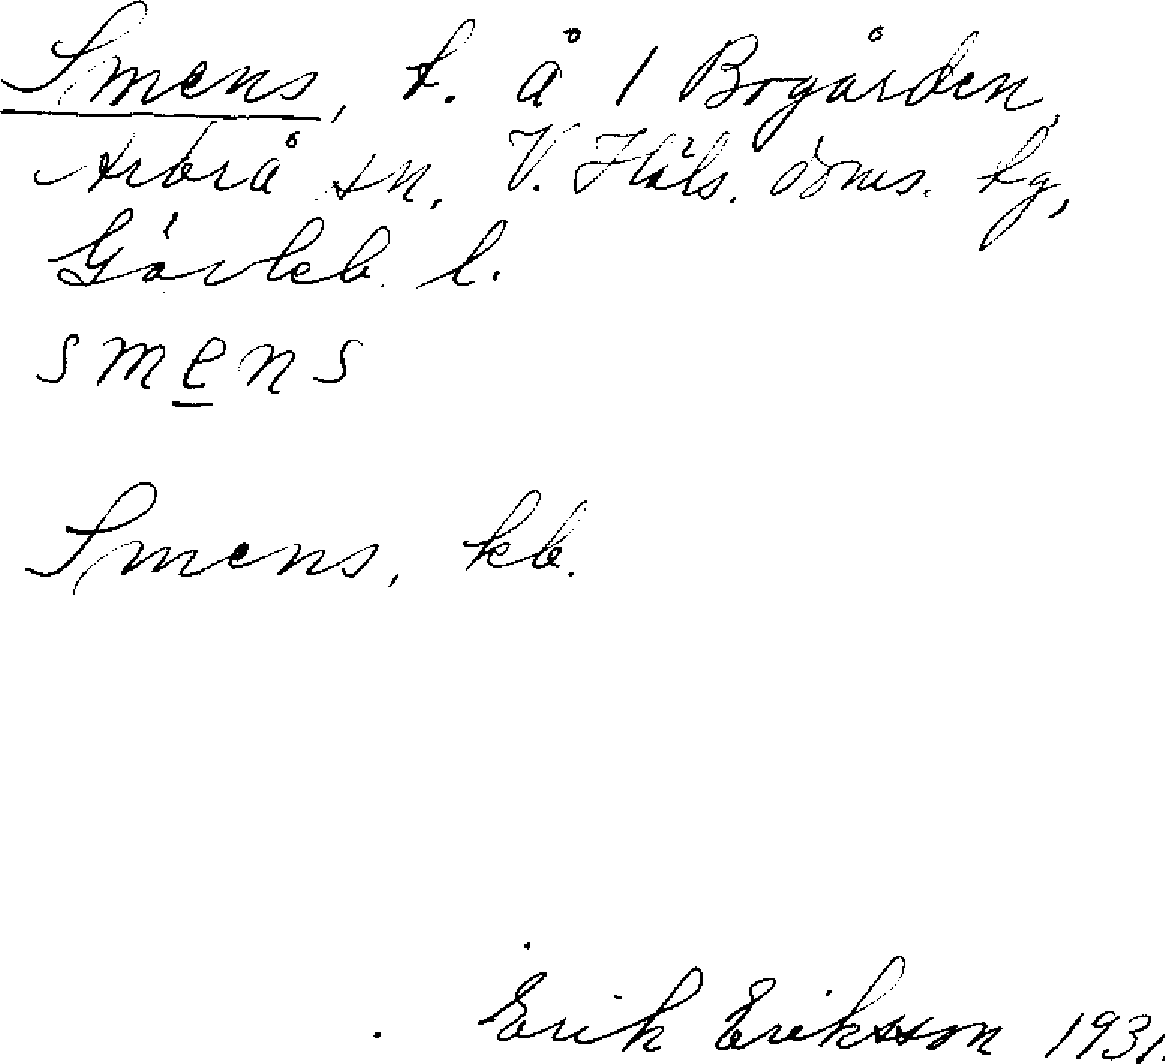 Smens, t. å 1 Bogården,
Arbrå sn, V. Häls. doms. tg,
Gävleb. l.
smens
Smens, kb.
Erik Eriksson 1931